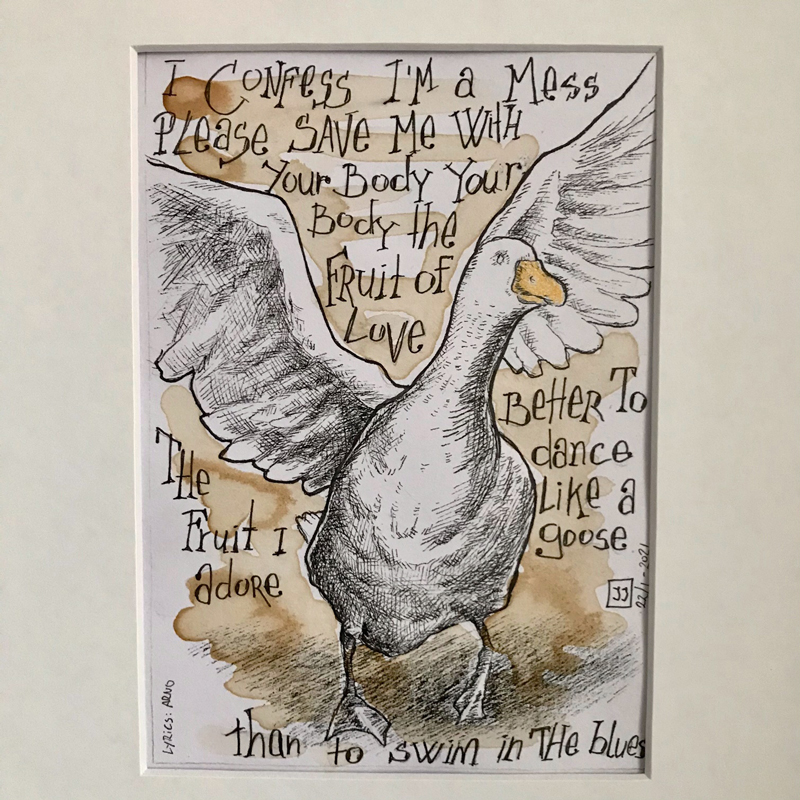 I CONFESS I'M a Mess
PLEASE SAVE Me WitH
Your Body Your
Body the
FRuit of
LoVE
THe
Fruit I
adoRE
BeHER To
dance
Like a
goose
JJ
22/1-2021
LYRICS: ARNO
than to swim in THe blues